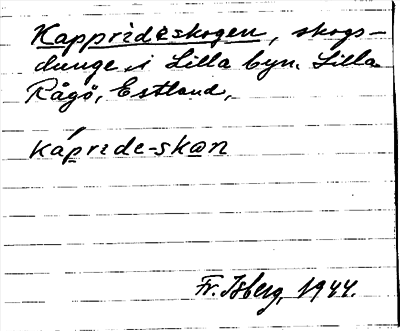 Kappridëskogen, skogs-
dunge i Lilla byn. Lilla
Rågö, Estland.
káprıde-skαn
Fr. Isberg, 1944.